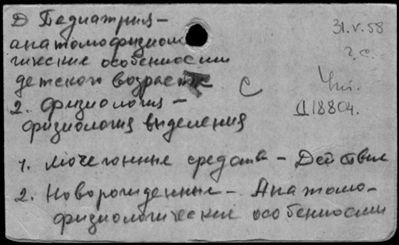 Д Педиатрия –
анатомофизиоло
гические особенности
детского возраста
2. физиология –
физиология выделения
1. мочегонные средства – Действие
2. Новорожденные – Анатомо-
физиологические особенности
31.V.58
г. с.
С
Д18804.